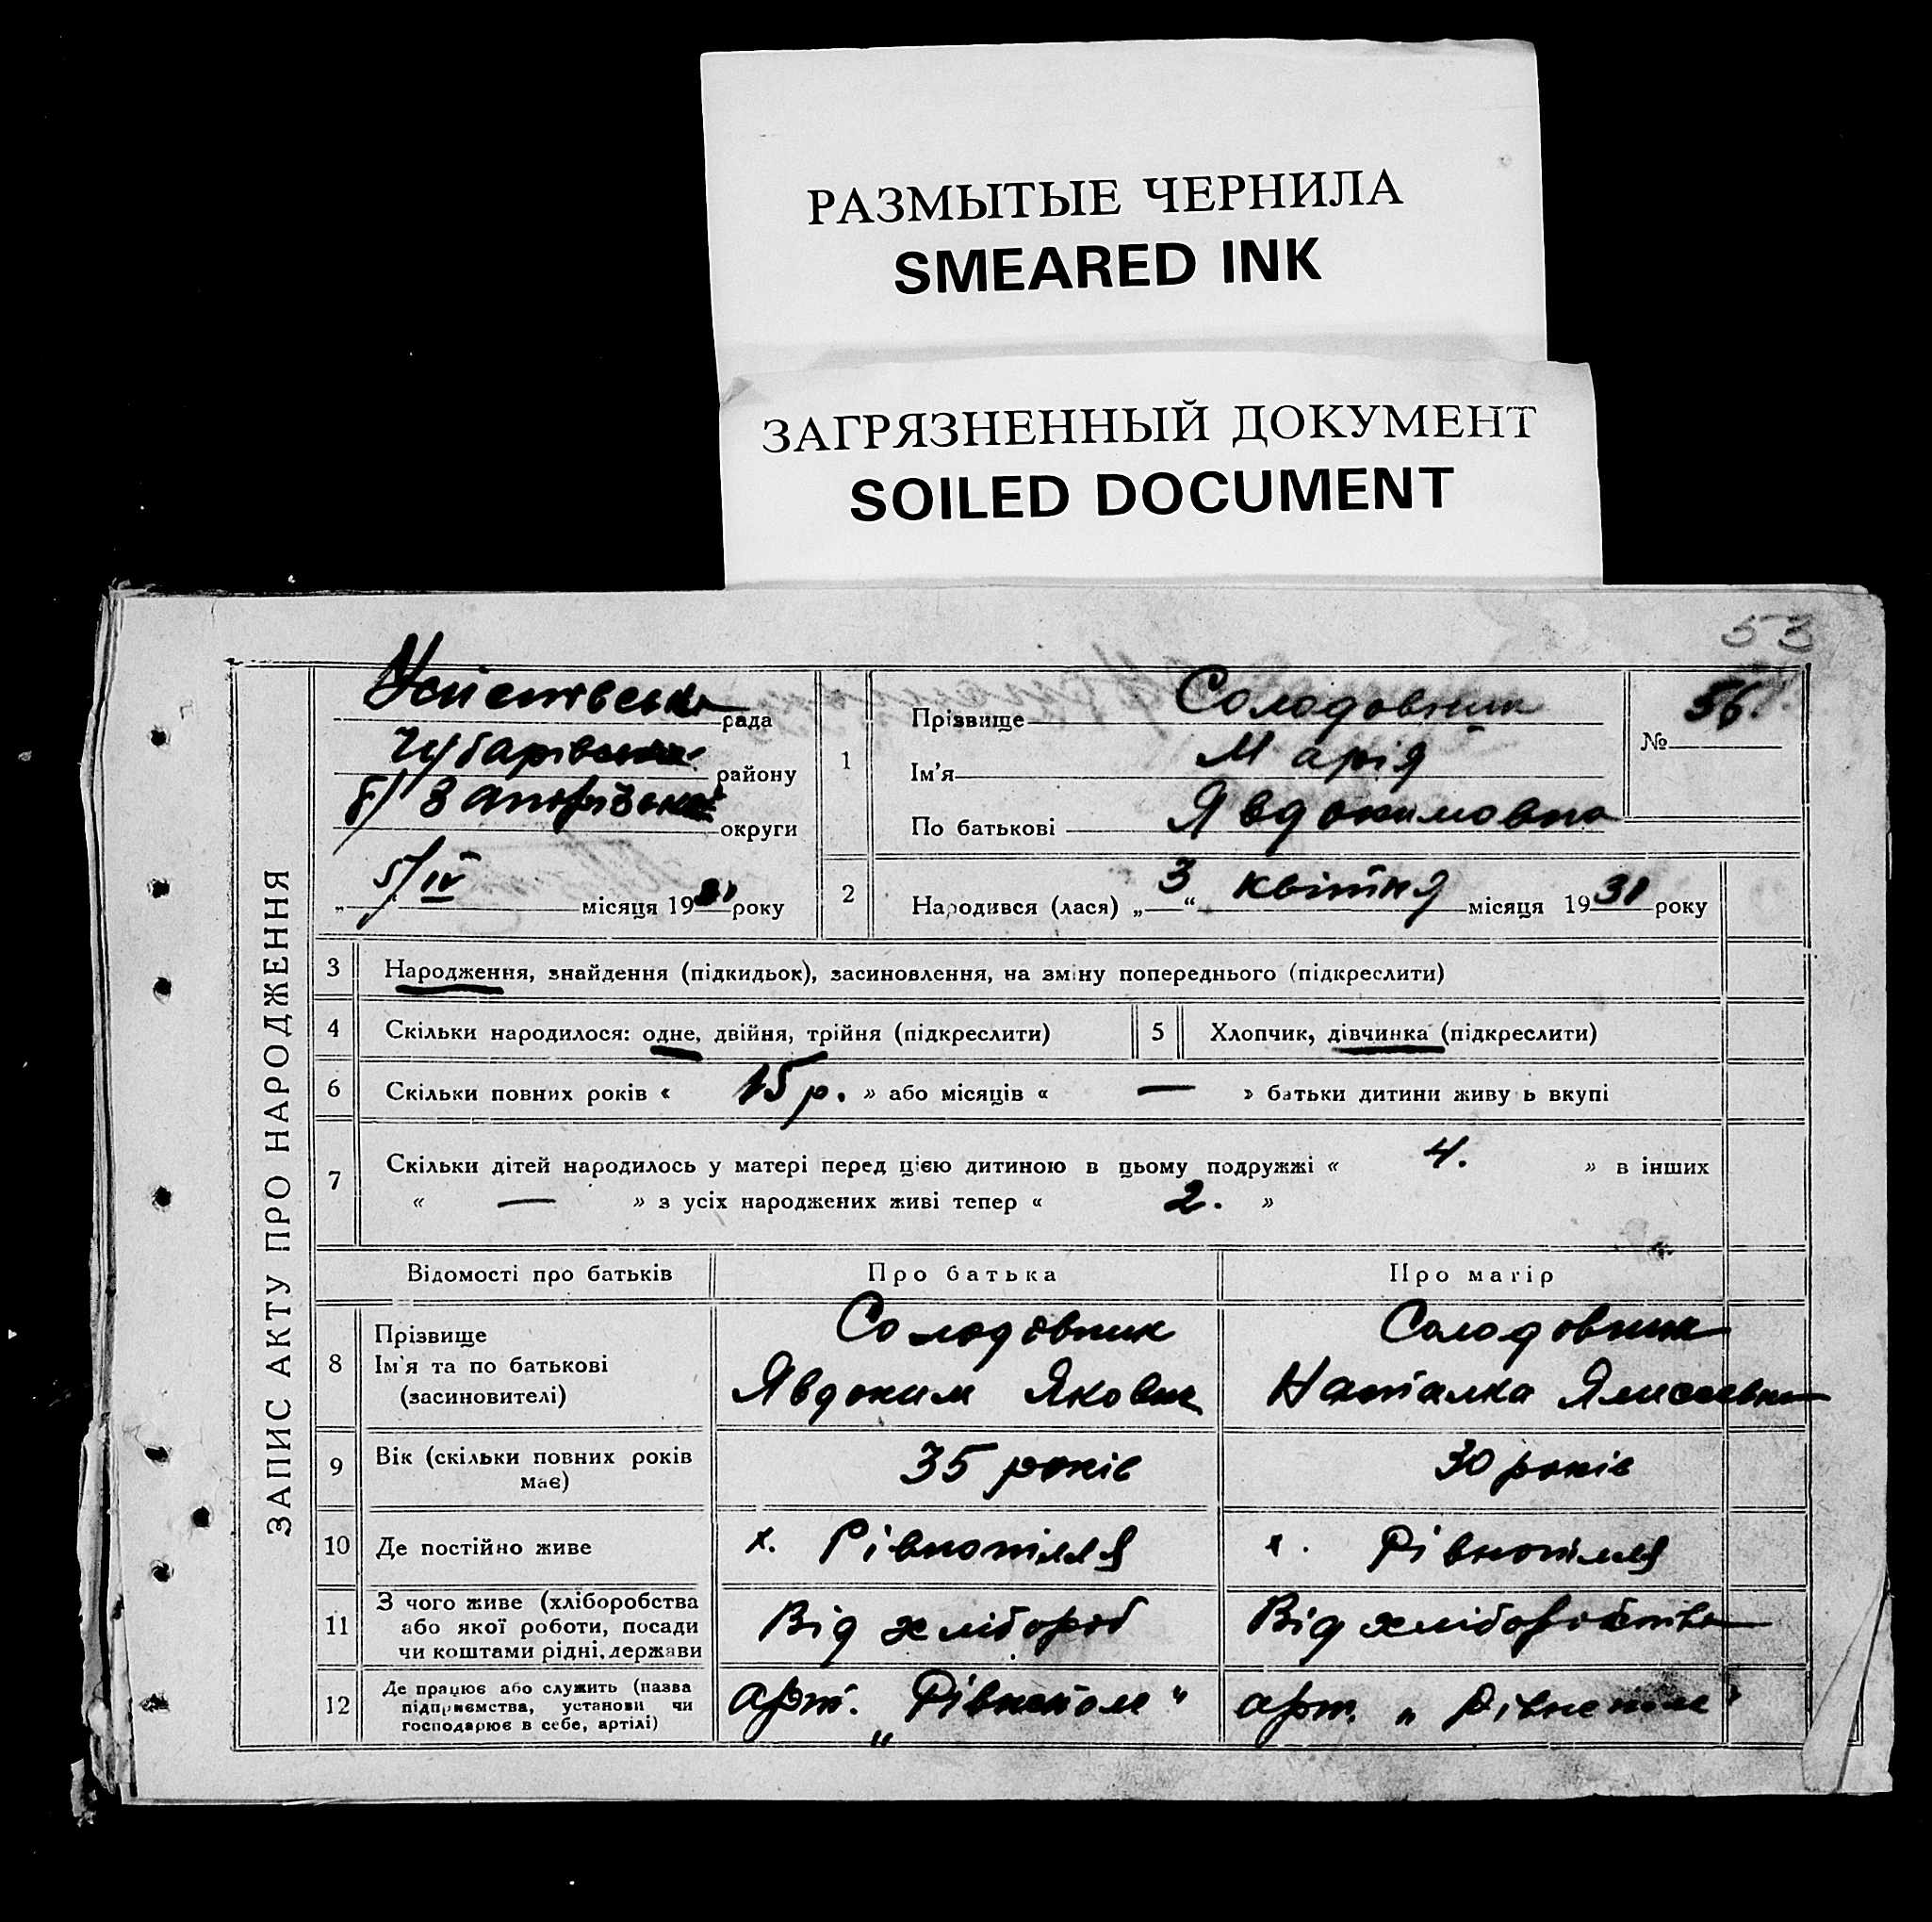 РАЗМЫТЫЕ ЧЕРНИЛА
SMEARED INK
ЗАГРЯЗНЕННЫЙ ДОКУМЕНТ
SOILED DOCUMENT
53
ЗАПИС АКТУ ПРО НАРОДЖЕННЯ
рада
Чубарівська району
б/ Запорізької округи
5/IV місяця 1931 року
1
Прізвище Солодовник
Ім'я Марія
По батькові Явдокимовна
№ 56.
2 Народився (лася) „ 3 “ квітня місяця 1931 року
3 Народження, знайдення (підкидьок), засиновлення, на зміну попереднього (підкреслити)
4 Скільки народилося: одне, двійня, трійня (підкреслити) 5 Хлопчик, дівчинка (підкреслити)
6 Скільки повних років « 15 р. » або місяців « — » батьки дитини живу ь вкупі
7 Скільки дітей народилось у матері перед цією дитиною в цьому подружжі « 4. » в інших
« — » з усіх народжених живі тепер « 2. »
Відомості про батьків Про батька Про матір
8 Прізвище Солодовник Солодовник
Ім'я та по батькові Явдоким Якович Наталка Ялисеевна
(засиновителі)
9 Вік (скільки повних років має) 35 років 30 років
10 Де постійно живе х. Рівнопілля х. Рівнопілля
11 З чого живе (хліборобства
або якої роботи, посади Від хлібороб Від хліборобства
чи коштами рідні, держави
12 Де працює або служить (назва
підприємства, установи чи арт. „Рівнопіле“ арт. „Рівнопіле“
господарює в себе, артілі)